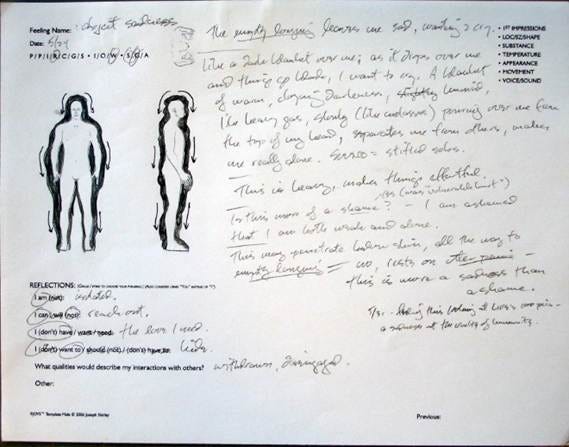 Feeling Name: abject sadness
Date: 5/24
The empty longing leaves me sad, wanting to cry.
Like a dark blanket over me; as it drops over me
and things go blank, I want to cry. A blanket
of warm, clinging darkness,
like heavy gas, slowly (like molasses) pouring over me from
the top of my head, separates me from others, makes
me really alone. = stifled sobs.
This is heavy, makes things effortful.
Is this more of a shame? - I am ashamed
that I am both weak and alone.
This may penetrate below skin, all the way to
empty longing = no, rests on
this is more a sadness than
a shame.
• 1ST IMPRESSIONS
• LOC/SZ/SHAPE
• SUBSTANCE
• TEMPERATURE
• APPEARANCE
• MOVEMENT
• VOICE/SOUND
REFLECTIONS:
I am (not): isolated.
I can (not): reach out.
I (don't) have / want / need: the love I need.
I (don't) want to / should (not) / (don't) have to: hide.
What qualities would describe my interactions with others? withdrawn, disengaged.
Other:
Template Male © 2006 Joseph Shirley
Previous: